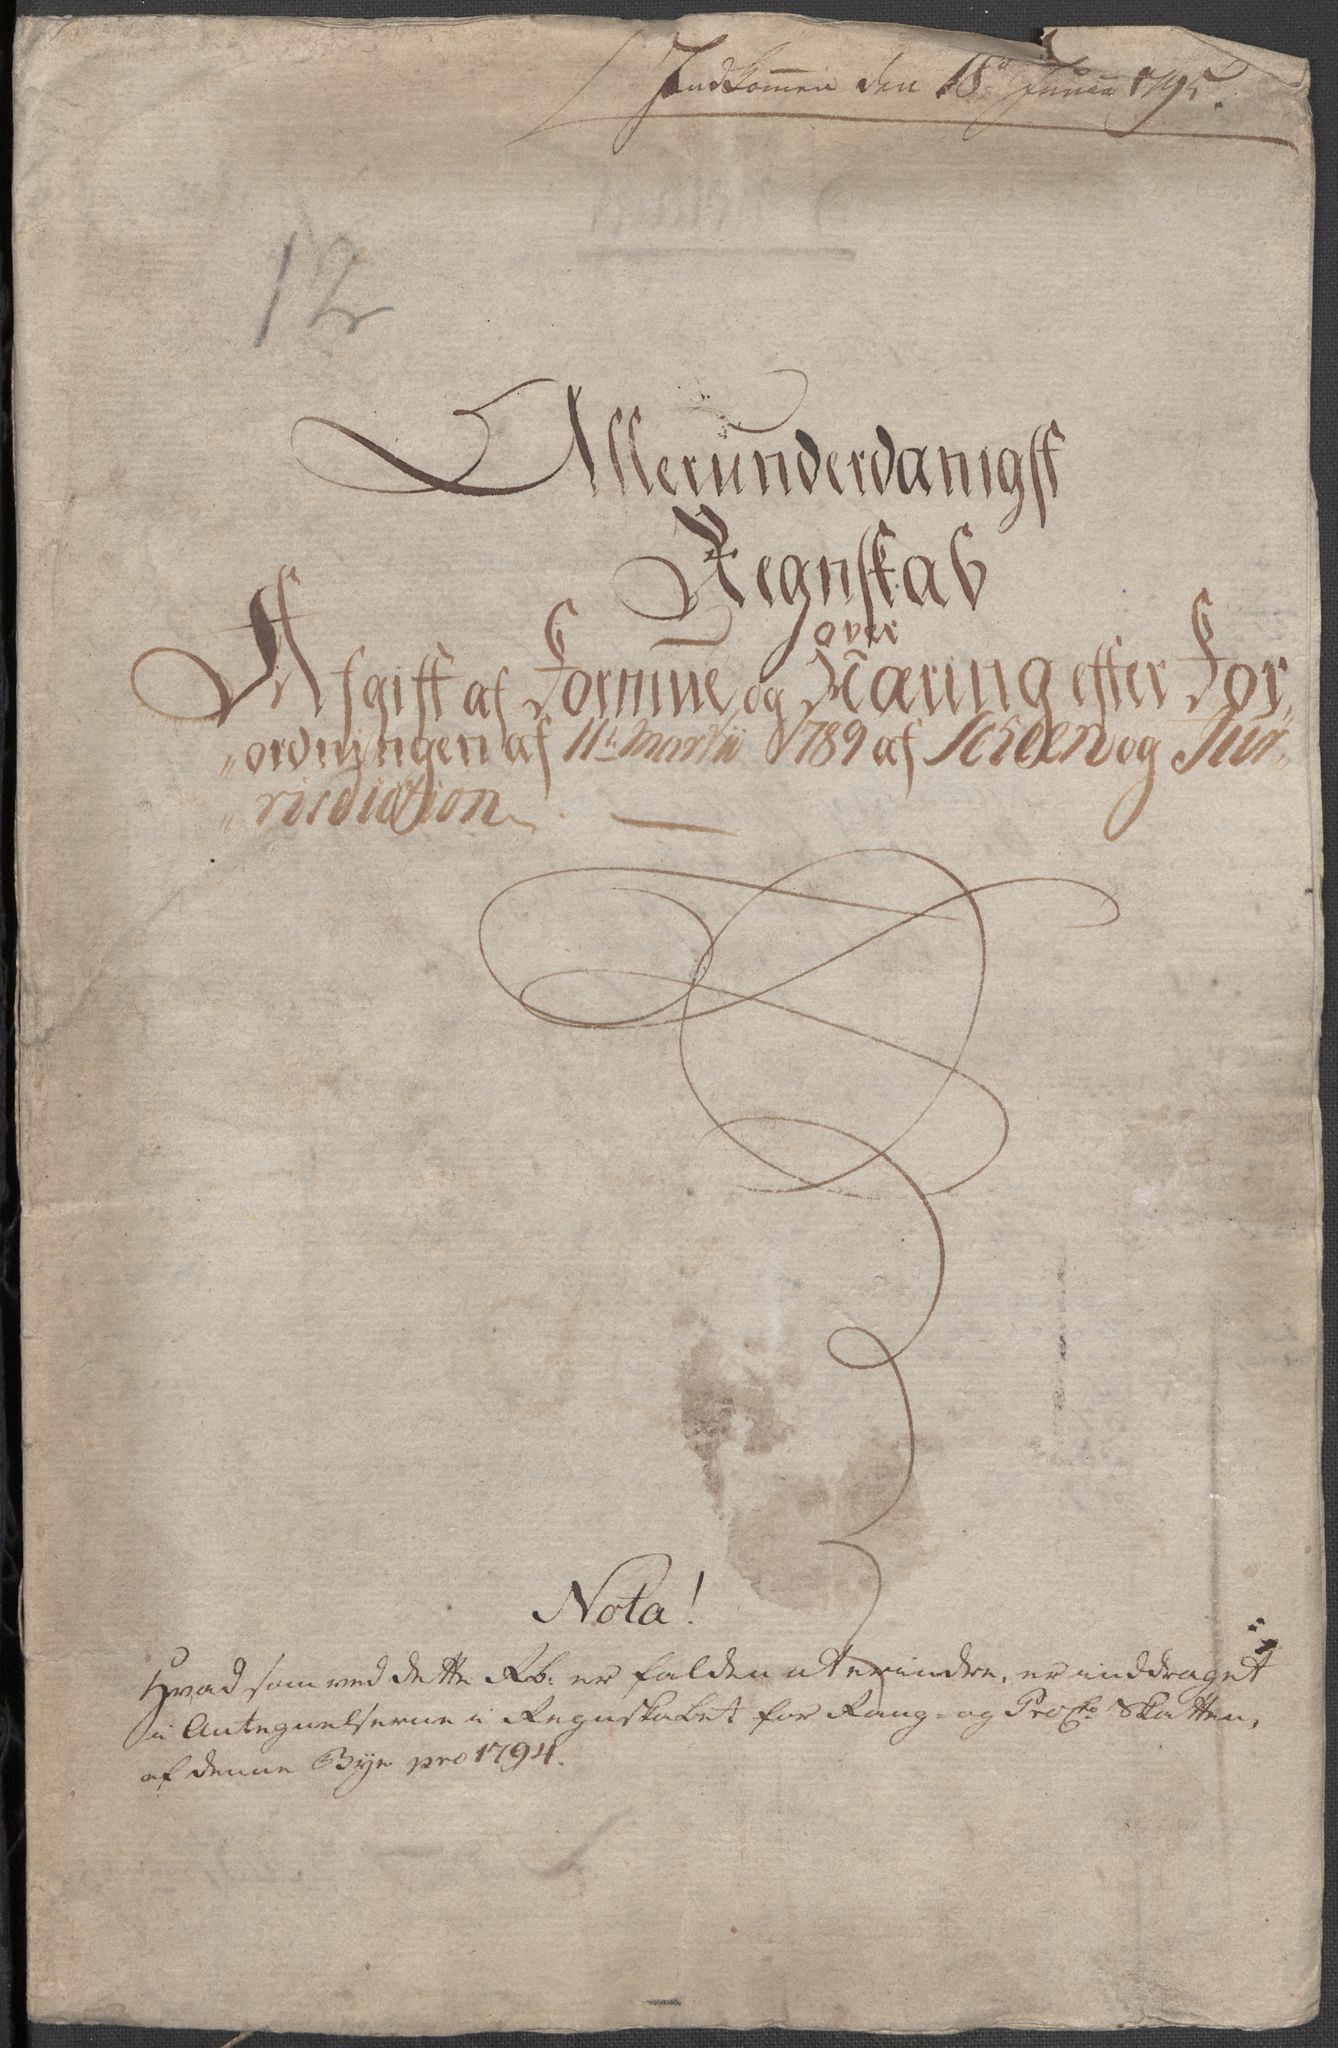 Indkommen den 18d Junii 1795.
12
Allerunderdanigst
Regnskab
over
Afgift af Formue og Næring efter For„
„ordningen af 11te Martii 1789 af Scheen og Jur„
„risdiction
Nota!
Hvad som ved dette Rb: er falden at erindre, er inddraget
i Antegnelserne i Regnskabet for Rang- og Proc̅to Skatten,
af denne Bye pro 1794.